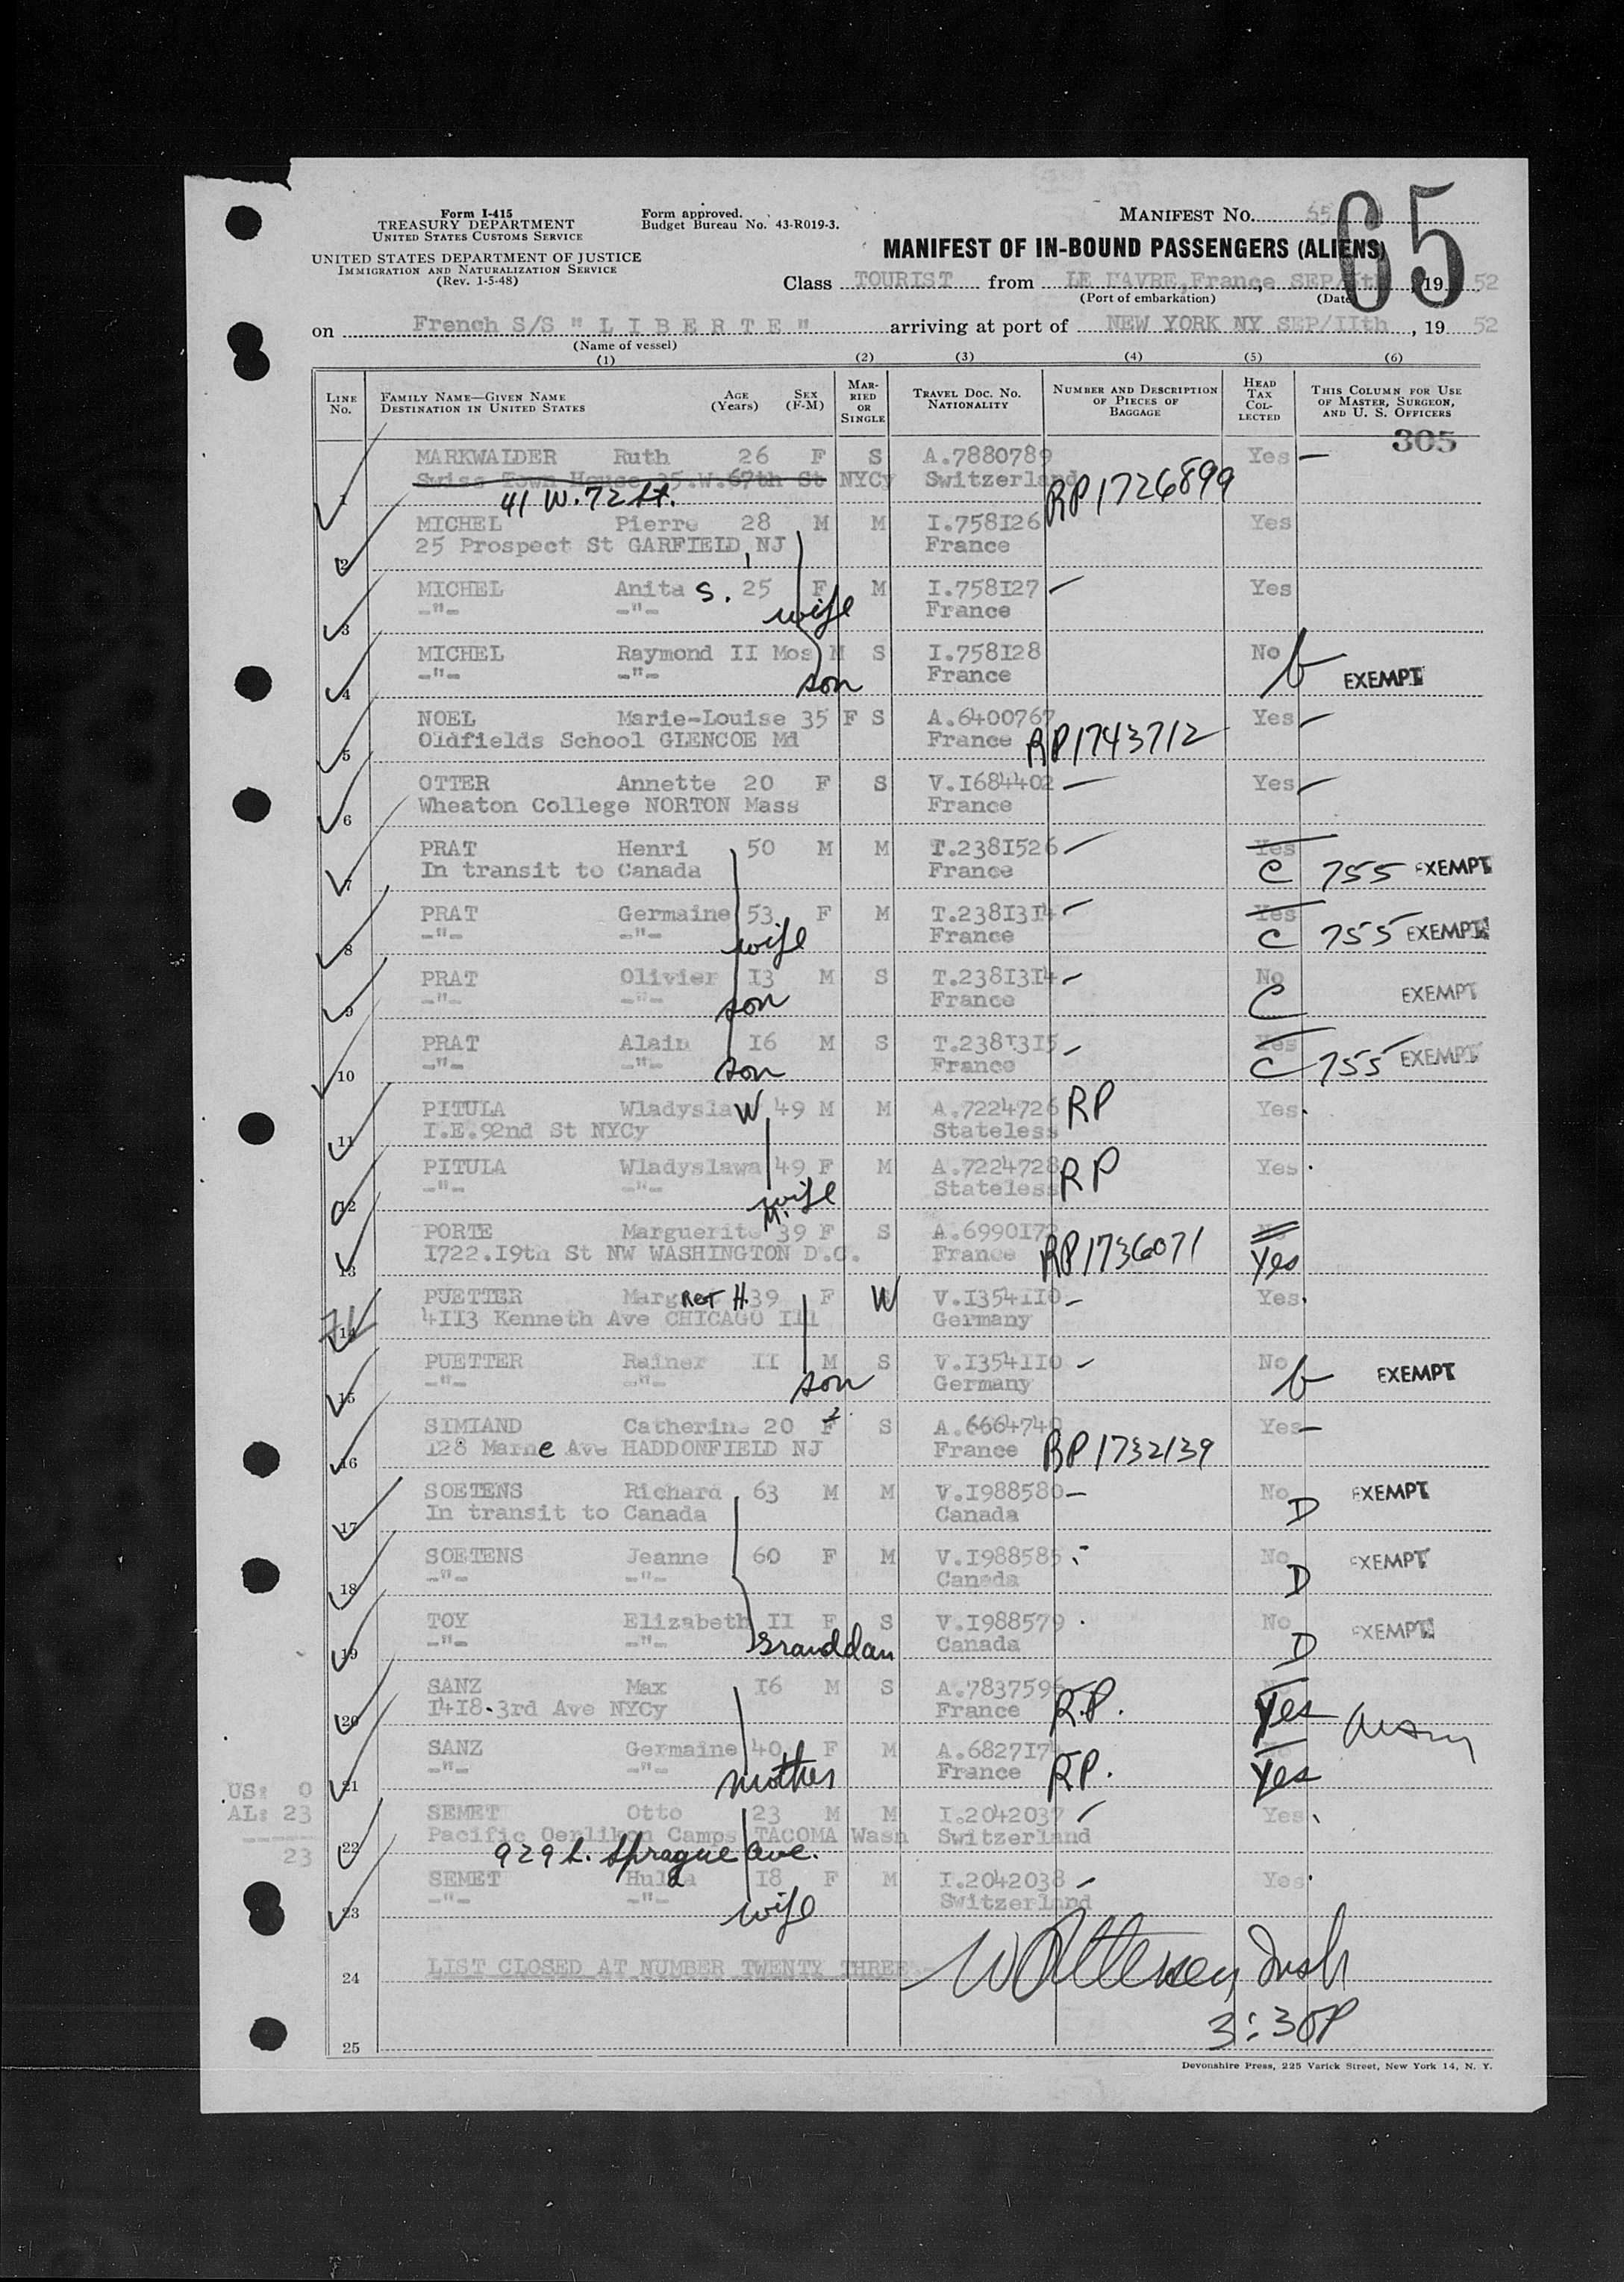 Form I-415
TREASURY DEPARTMENT
UNITED STATES CUSTOMS SERVICE
UNITED STATES DEPARTMENT OF JUSTICE
IMMIGRATION AND NATURALIZATION SERVICE
(Rev. 1-5-48)
Form approved.
Budget Bureau No. 43-R019-3.
MANIFEST No. 65
65
MANIFEST OF IN-BOUND PASSENGERS (ALIENS)
Class TOURIST from LE HAVRE, France, SEP/ , 19 52
(Port of embarkation) (Date)
on French S/S " L I B E R T E " arriving at port of NEW YORK NY SEP/IIth , 19 52
(Name of vessel)
(1) (2) (3) (4) (5) (6)
LINE No. FAMILY NAME—GIVEN NAME DESTINATION IN UNITED STATES AGE (Years) SEX (F-M) MARRIED OR SINGLE TRAVEL DOC. No. NATIONALITY NUMBER AND DESCRIPTION OF PIECES OF BAGGAGE HEAD TAX COLLECTED THIS COLUMN FOR USE OF MASTER, SURGEON, AND U. S. OFFICERS
305
MARKWALDER Ruth 26 F S A.7880789 Yes —
1 Swiss Town House 35.W.67th St NYCy Switzerland RP1726899
41 W. 72 St.
MICHEL Pierre 28 M M I.758I26 Yes
2 25 Prospect St GARFIELD, NJ France
MICHEL Anita S. 25 F M I.758I27 — Yes
3 -"- -"- wife France
MICHEL Raymond II Mos M S I.758I28 No
4 -"- -"- son France b EXEMPT
NOEL Marie-Louise 35 F S A.6400767 Yes —
5 Oldfields School GLENCOE Md France RP1743712
OTTER Annette 20 F S V.I684402 — Yes —
6 Wheaton College NORTON Mass France
PRAT Henri 50 M M T.238I526 — Yes
7 In transit to Canada France C 755 EXEMPT
PRAT Germaine 53 F M T.238I3I4 — Yes
8 -"- -"- wife France C 755 EXEMPT
PRAT Olivier I3 M S T.238I3I4 — No
9 -"- -"- son France C EXEMPT
PRAT Alain I6 M S T.238I3I5 — Yes
10 -"- -"- son France C 755 EXEMPT
PITULA Wladyslaw 49 M M A.7224726 RP Yes
11 I.E.92nd St NYCy Stateless
PITULA Wladyslawa 49 F M A.7224728 RP Yes
12 -"- -"- wife Stateless
PORTE Marguerite M. 39 F S A.699017 No
13 I722.I9th St NW WASHINGTON D.C. France RP1736071 Yes
PUETTER Margaret H. 39 F W V.I354II0 — Yes
14 4II3 Kenneth Ave CHICAGO Ill Germany
PUETTER Rainer II M S V.I354II0 — No
15 -"- -"- son Germany b EXEMPT
SIMIAND Catherine 20 F S A.666474 Yes —
16 I28 Marne Ave HADDONFIELD NJ France RP1732139
SOETENS Richard 63 M M V.I988580 — No EXEMPT
17 In transit to Canada Canada D
SOETENS Jeanne 60 F M V.I988585 No EXEMPT
18 -"- -"- Canada D
TOY Elizabeth II F S V.I988579 No EXEMPT
19 -"- -"- Granddau Canada D
SANZ Max I6 M S A.783759 R.P. Yes
20 I4I8.3rd Ave NYCy France
SANZ Germaine 40 F M A.68271 RP. Yes
21 -"- -"- mother France
US: 0
AL: 23
23
SEMET Otto 23 M M I.2042037 — Yes
22 Pacific Oerlikon Camps TACOMA Wash Switzerland
929 S. Sprague Ave.
SEMET Hulda I8 F M I.2042038 — Yes
23 -"- -"- wife Switzerland
24 LIST CLOSED AT NUMBER TWENTY THREE
3:30P
25
Devonshire Press, 225 Varick Street, New York 14, N. Y.